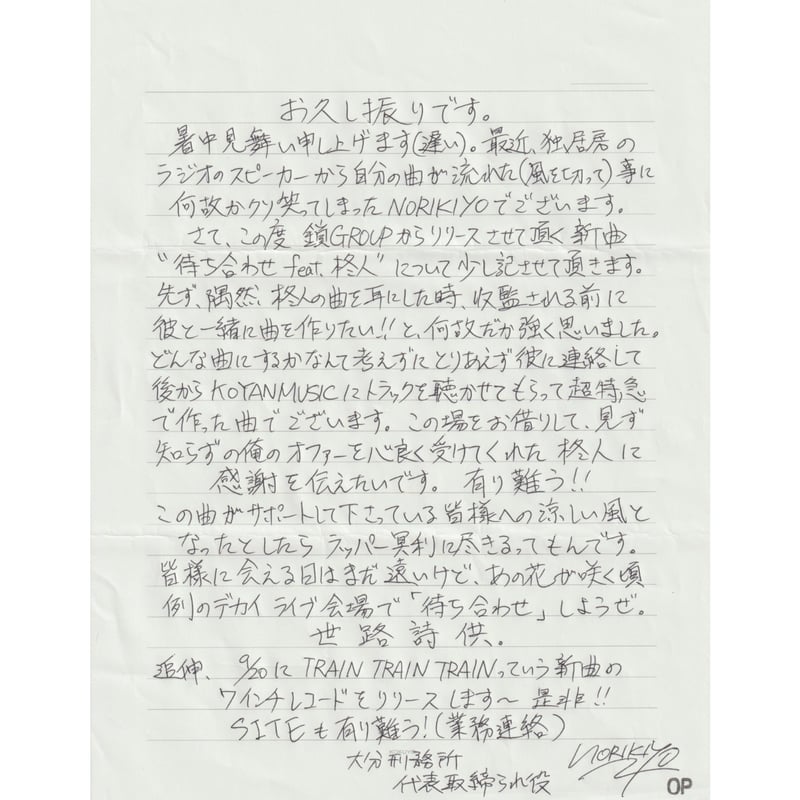 お久し振りです。
暑中見舞い申し上げます(遅い)。最近、独居房の
ラジオのスピーカーから自分の曲が流れた(風を切って)事に
何故かクソ笑ってしまったNORIKIYOでございます。
さて、この度 鎖GROUPからリリースさせて頂く新曲
"待ち合わせ feat. 柊人"について少し記させて頂きます。
先ず、隅然、柊人の曲を耳にした時、収監される前に
彼と一緒に曲を作りたい!!と、何故だか強く思いました。
どんな曲にするかなんて考えずにとりあえず彼に連絡して
後からKOYANMUSICにトラックを聴かせてもらって超特急
で作った曲でございます。この場をお借りして、見ず
知らずの俺のオファーを心良く受けてくれた 柊人に
感謝を伝えたいです。 有り難う!!
この曲がサポートして下さっている皆様への涼しい風と
なったとしたら ラッパー冥利に尽きるってもんです。
皆様に会える日はまだ遠いけど、あの花が咲く頃
例のデカイ ライブ会場で「待ち合わせ」しようぜ。
世路詩供。
追伸、 9/20に TRAIN TRAIN TRAINっていう新曲の
7インチレコードをリリースします〜 是非!!
SITEも有り難う!(業務連絡)
大分刑務所
代表取締られ役
NORIKIYO
OP